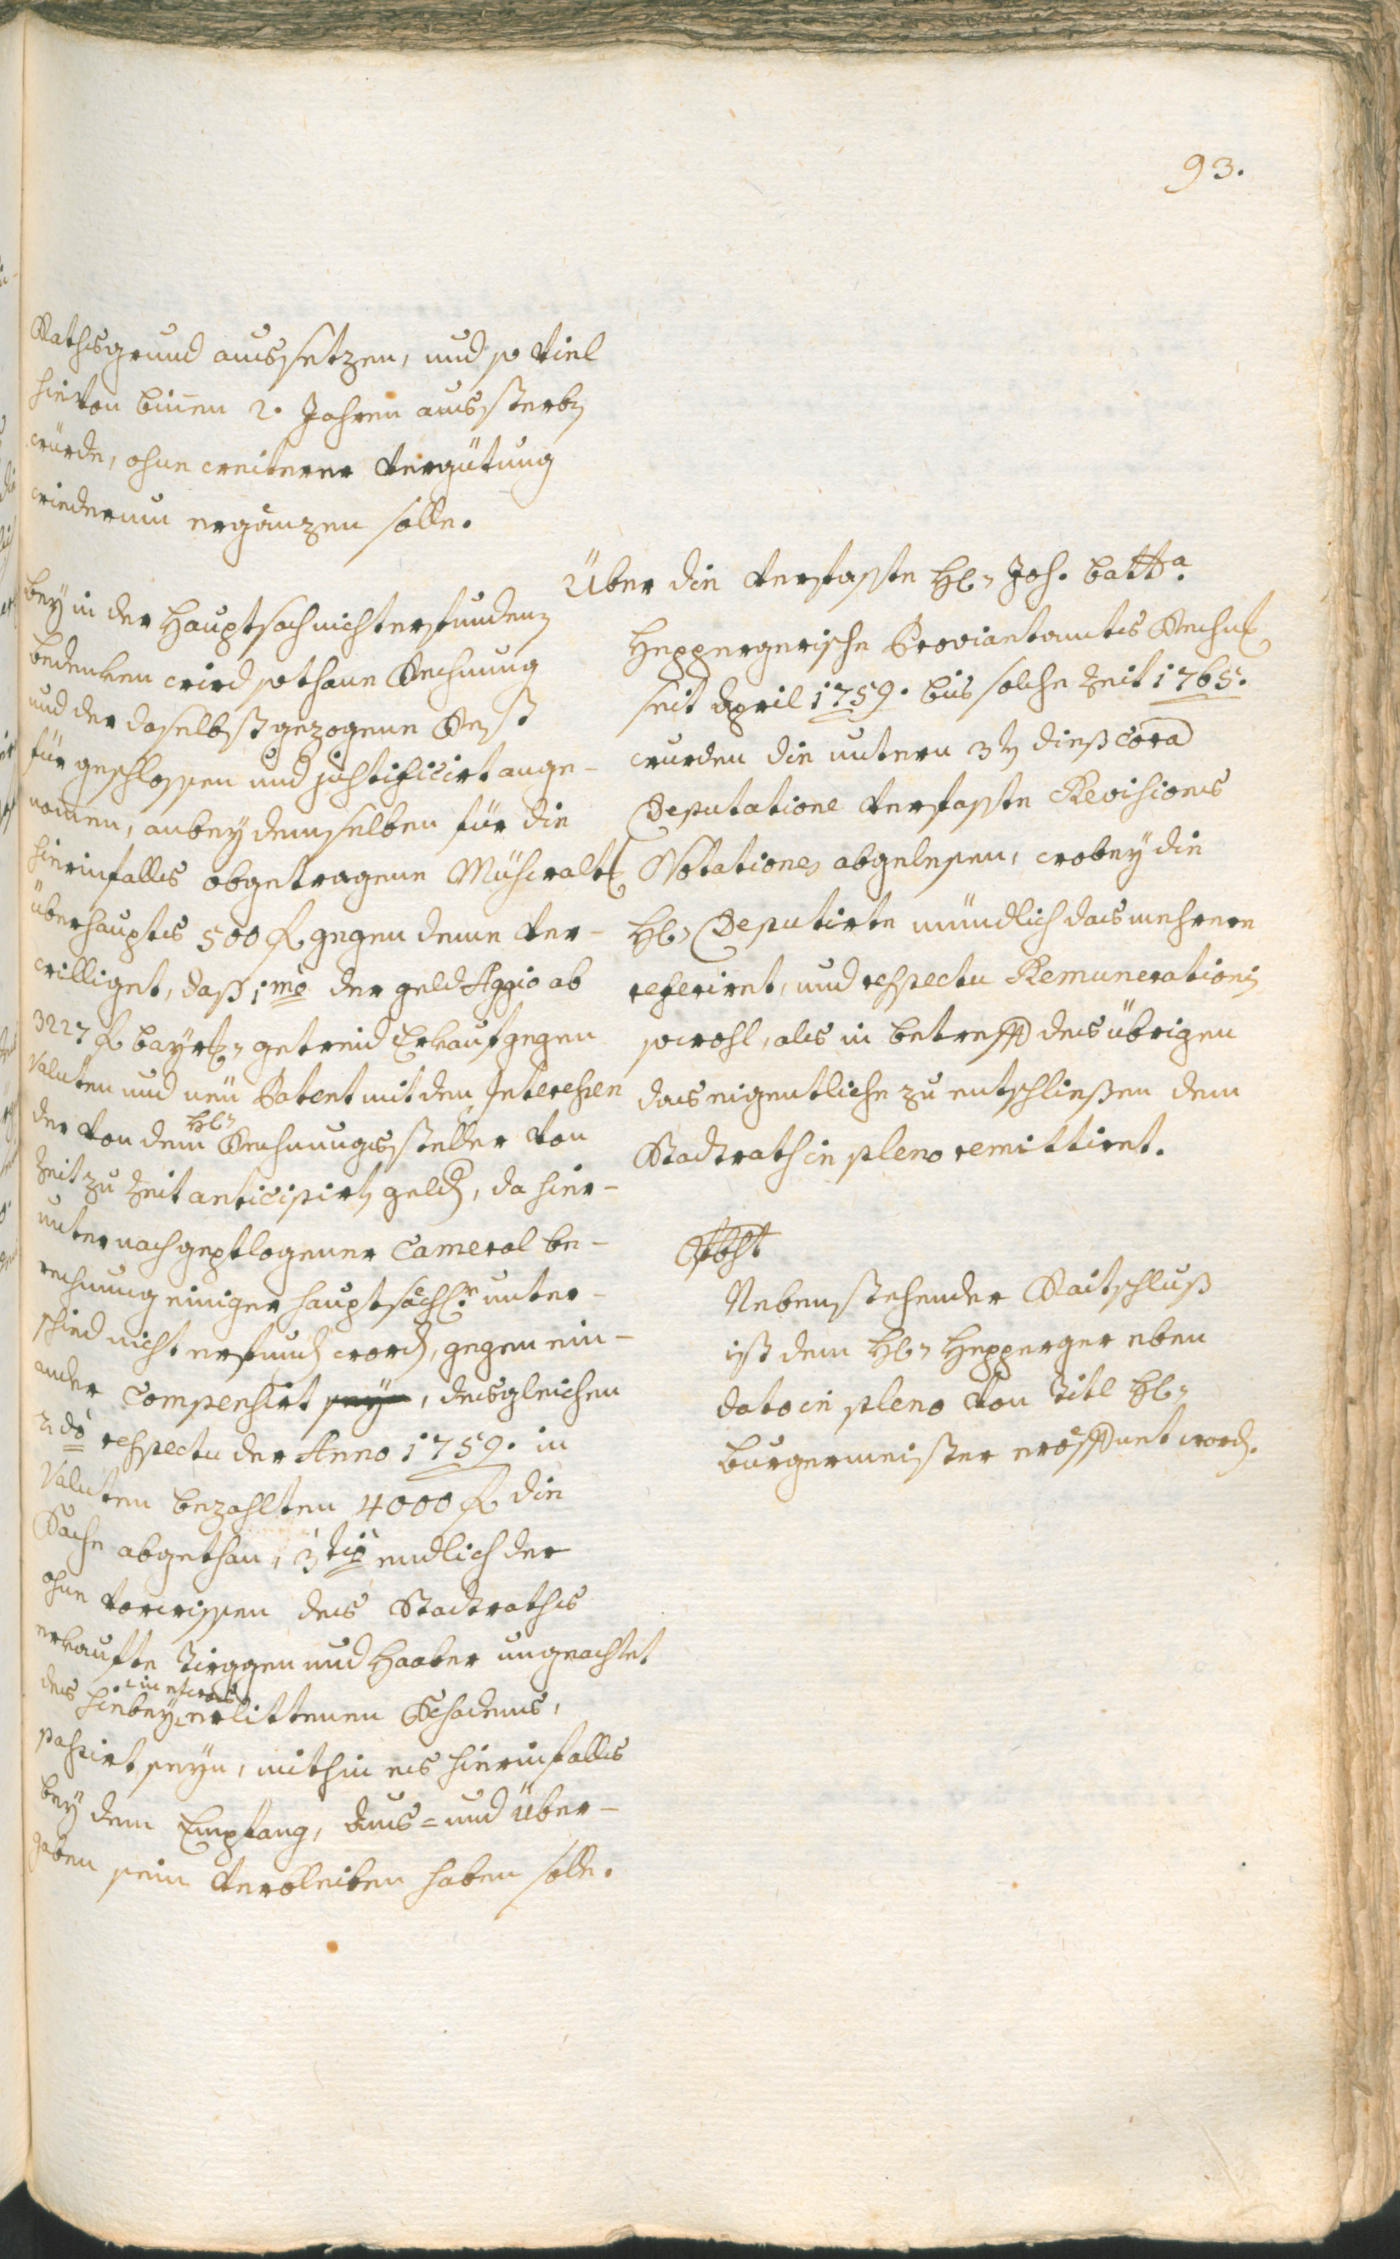 93.
Rathsgrund aussetzen, und so viel
hievon binnen 2. Jahren aussterbẽ
würde, ohne weiterer Vergütung
wiederum ergänzen solle.
bey in der Hauptsach nicht erfundenẽ
bedenken wird sothane Rechnung
und der daselbst gezogene Rest
für geschlossen und justificirt ange-
nomen, anbey demselben für die
hierinfalls obgetragene Mühewalt
überhaupts 500 f gegen deme ver-
williget, daß 1mo der geld Aggio ab
3227 f bayr. getreid Erkauf gegen
Valuten und neü Patent mit den Interessen
der von dem Hl. Rechnungssteller von
Zeit zu Zeit anticipirtẽ geldẽ, da hier-
unter nach gepflogener Cameral be-
rechnung einiger hauptsächlr unter-
schied nicht erfundẽ wordẽ, gegen ein-
ander compensirt sey, desgleichen
2do respectu der Anno 1759. in
Valuten bezahlten 4000 f die
Sache abgethan, 3tiò endlich der
ohne vorwissen des Stadtraths
erkaufte Tirggen und Haaber ungeachtet
des hiebey erlittenen Schadens,
passirt seyn, mithin es hierinfalls
bey dem Empfang, Aus- und Über-
gaben sein Verbleiben haben solle.
Über die verfasste Hl. Joh. Battã
Heppergerische Proviantamts Rechnũg
seit April 1759. bis solche Zeit 1765.
wurden die untern 3tẽ dieß cora
Deputatione verfasste Revisions
Notationes abgelesen, wobey die
Hl. Deputirte mündlich das mehrere
referiret, und respectu Remunerationis
sowohl, als in betreff des übrigen
das eigentliche zu entschließen dem
Stadtrath in pleno remittiret.
Nebenstehender Raitschluß
ist dem Hl. Hepperger eben
dato in pleno von Titl Hl.
Burgermeister eröffnet wordẽ.